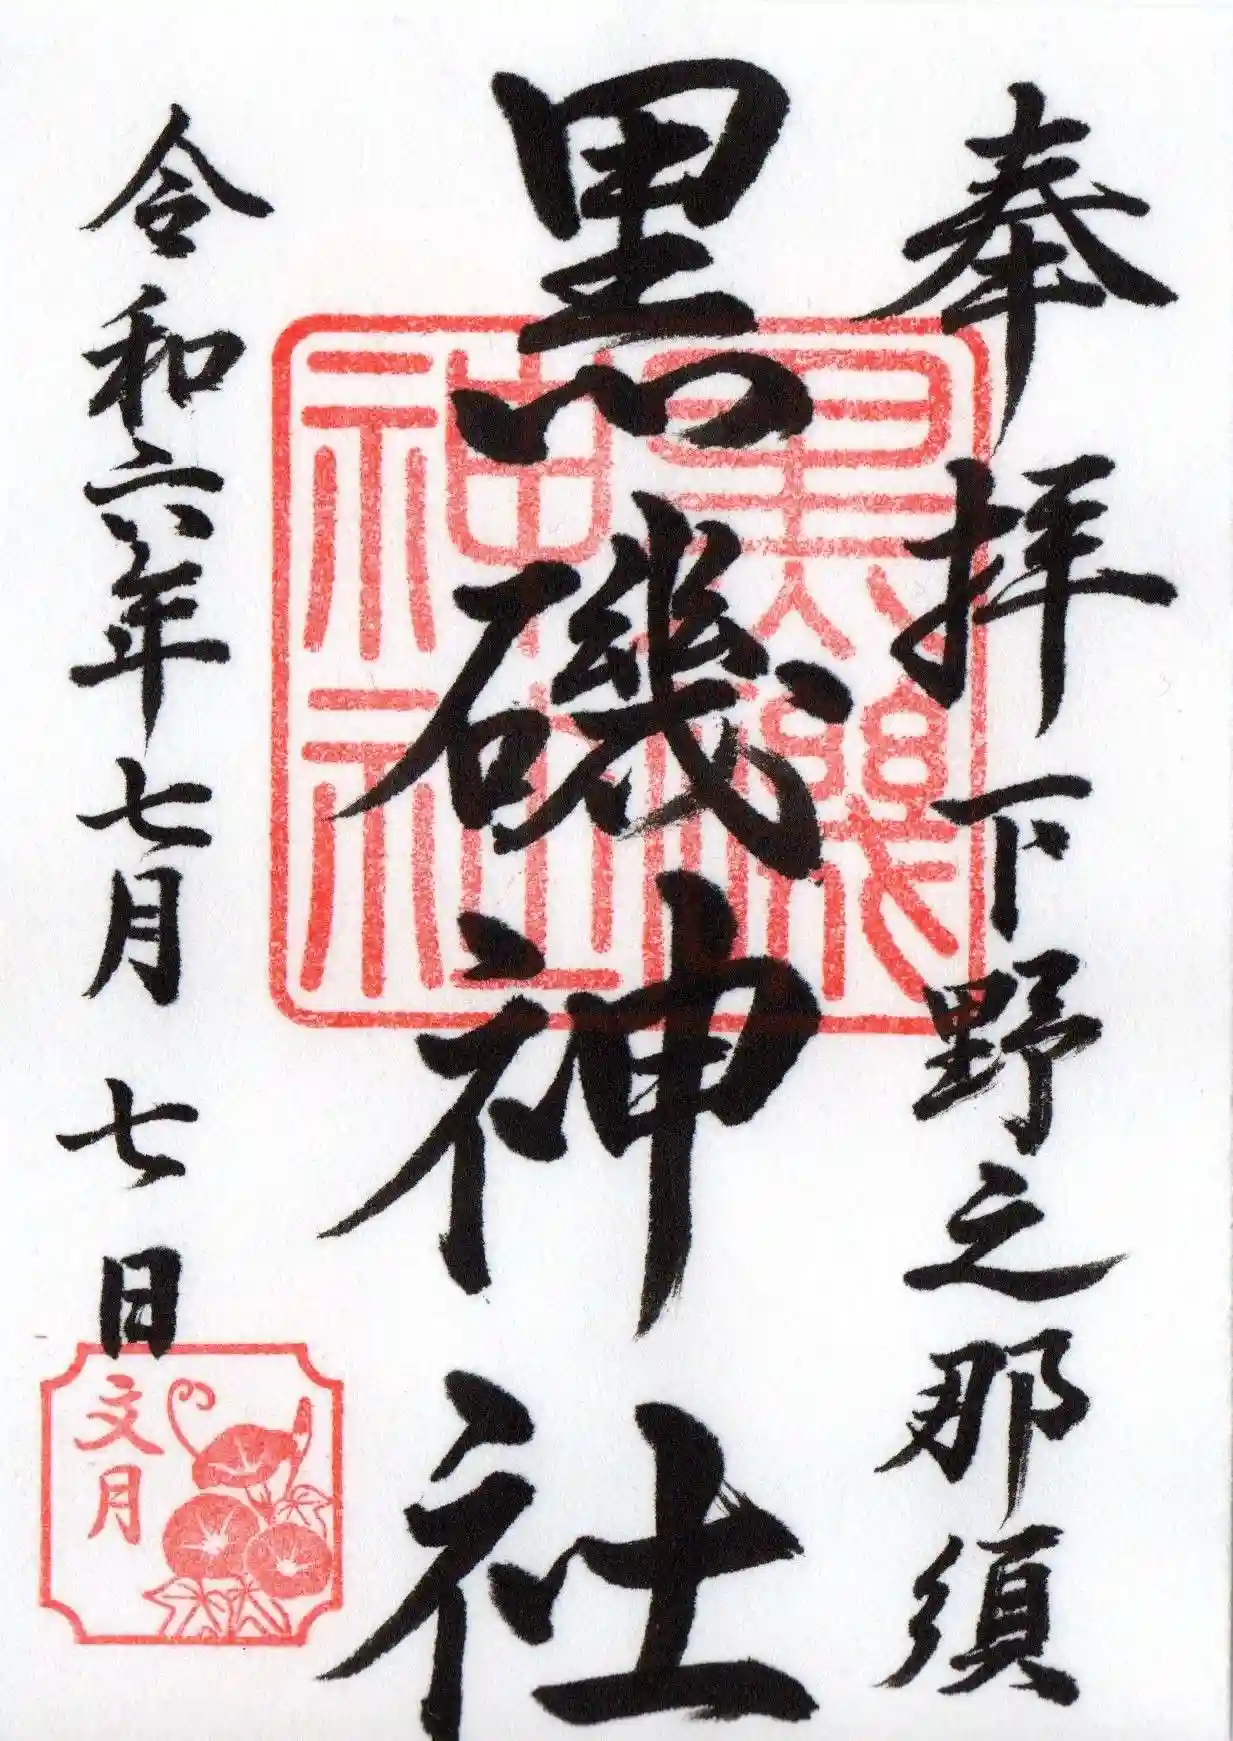 奉拝 下野之那須
黒磯神社
令和六年七月七日
黒磯
神社
文月